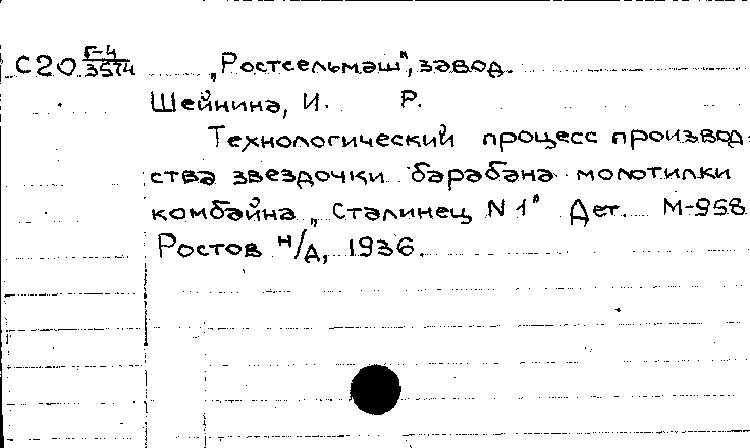 С20 Г-4/3574 „Ростсельмаш", завод.
Шейнина, И. Р.
Технологический процесс производ-
ства звездочки барабана молотилки
комбайна „Сталинец N 1" Дет. М-958
Ростов н/Д, 1936.